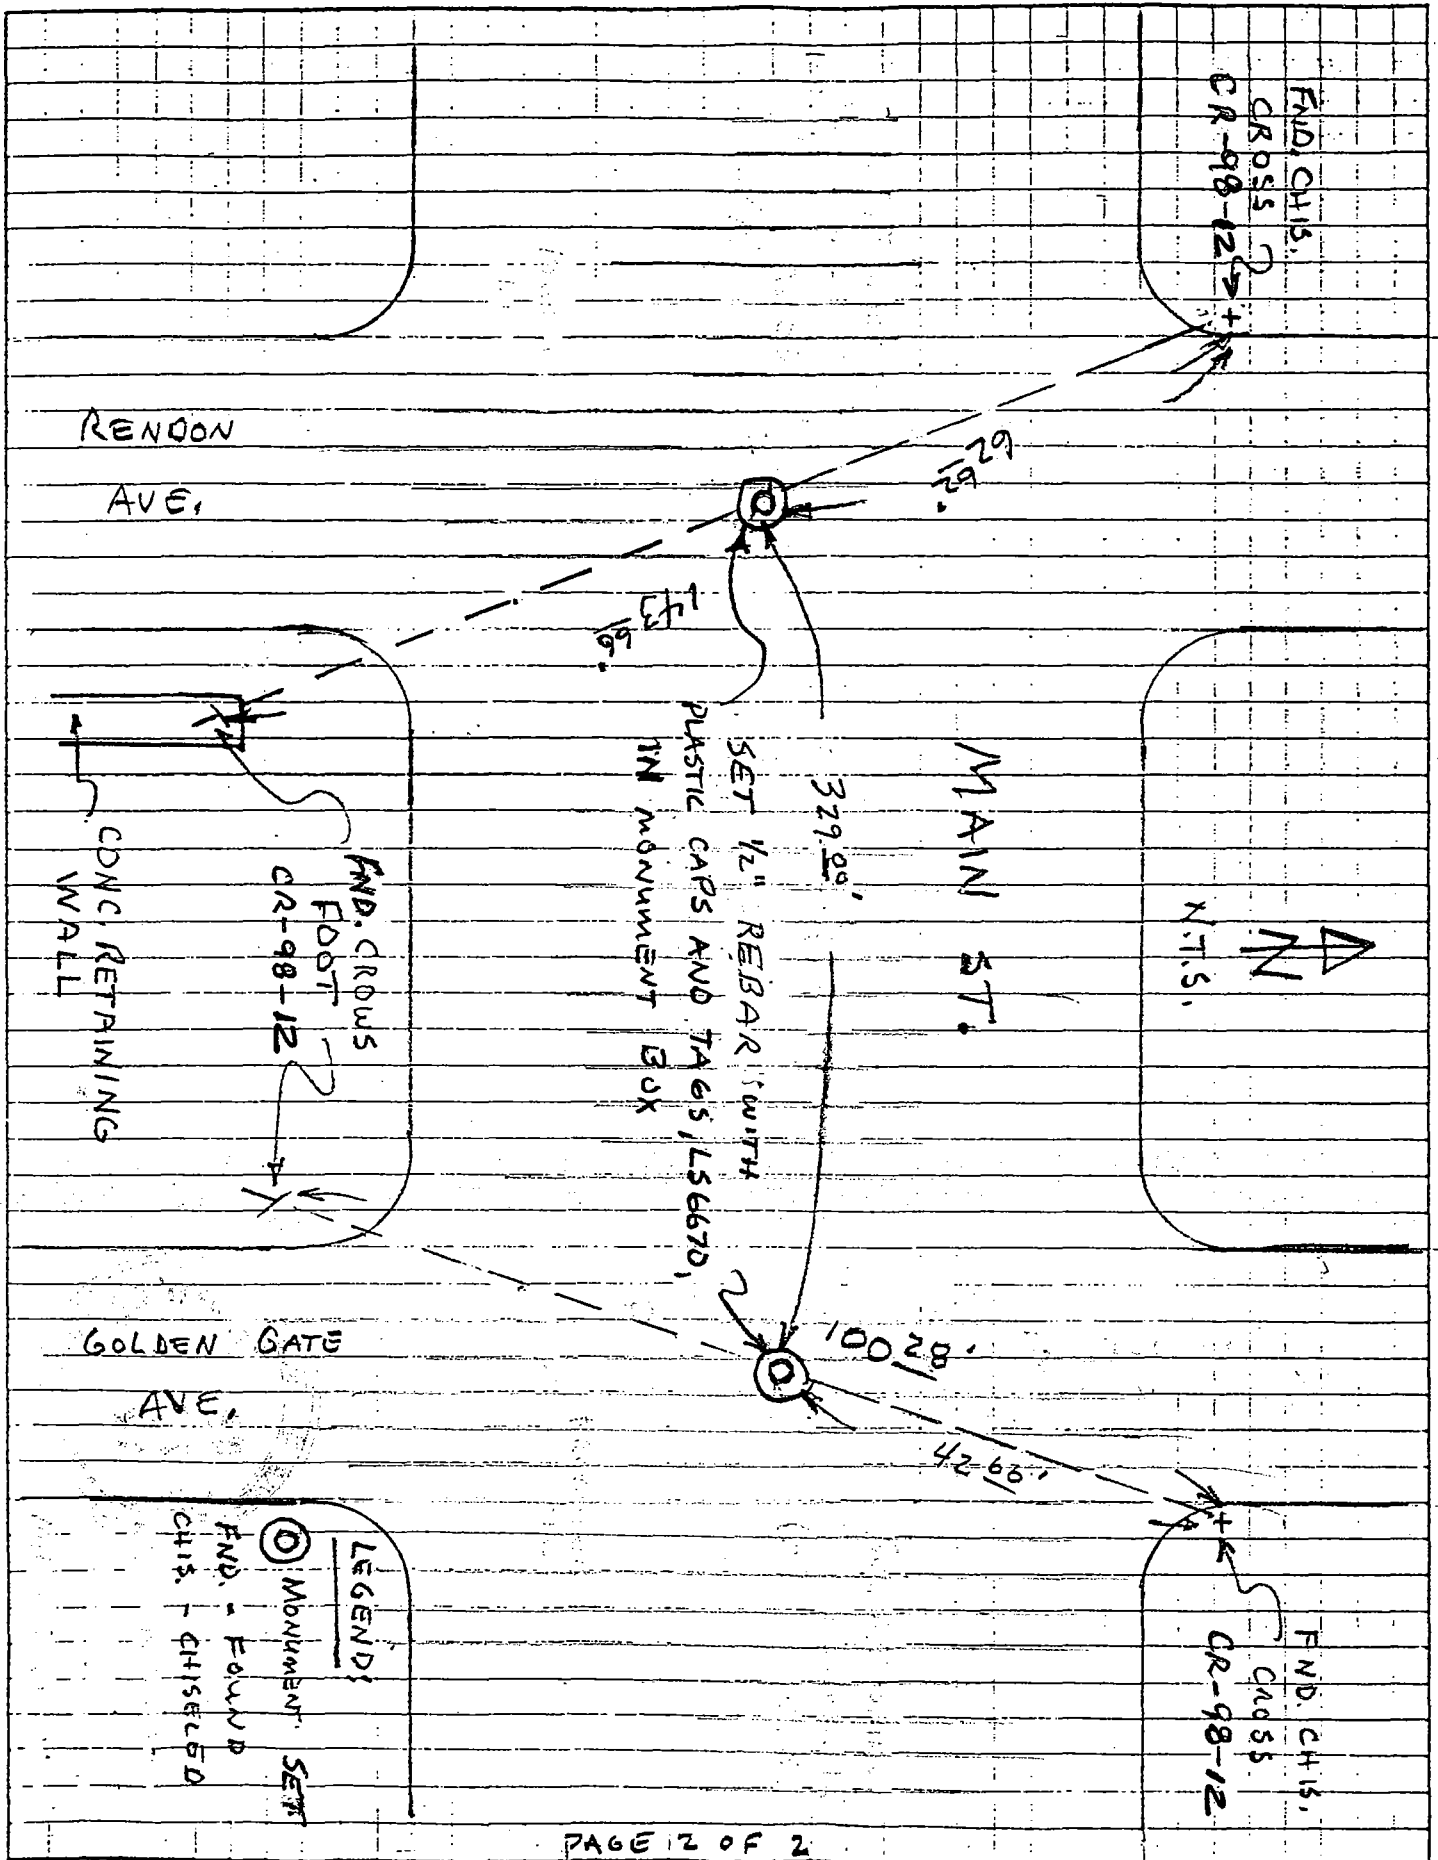 FND. CHIS.
CROSS
CR-98-12
RENDON
AVE.
62 62'
143 66'
MAIN ST.
329.00'
SET 1/2" REBAR WITH
PLASTIC CAPS AND TAGS, LS6670,
IN MONUMENT BOX
N
N.T.S.
FND. CROWS
FOOT
CR-98-12
CONC. RETAINING
WALL
GOLDEN GATE
AVE.
42 66'
FND. CHIS.
CROSS
CR-98-12
LEGEND:
MONUMENT SET
FND. - FOUND
CHIS. - CHISELED
PAGE 2 OF 2